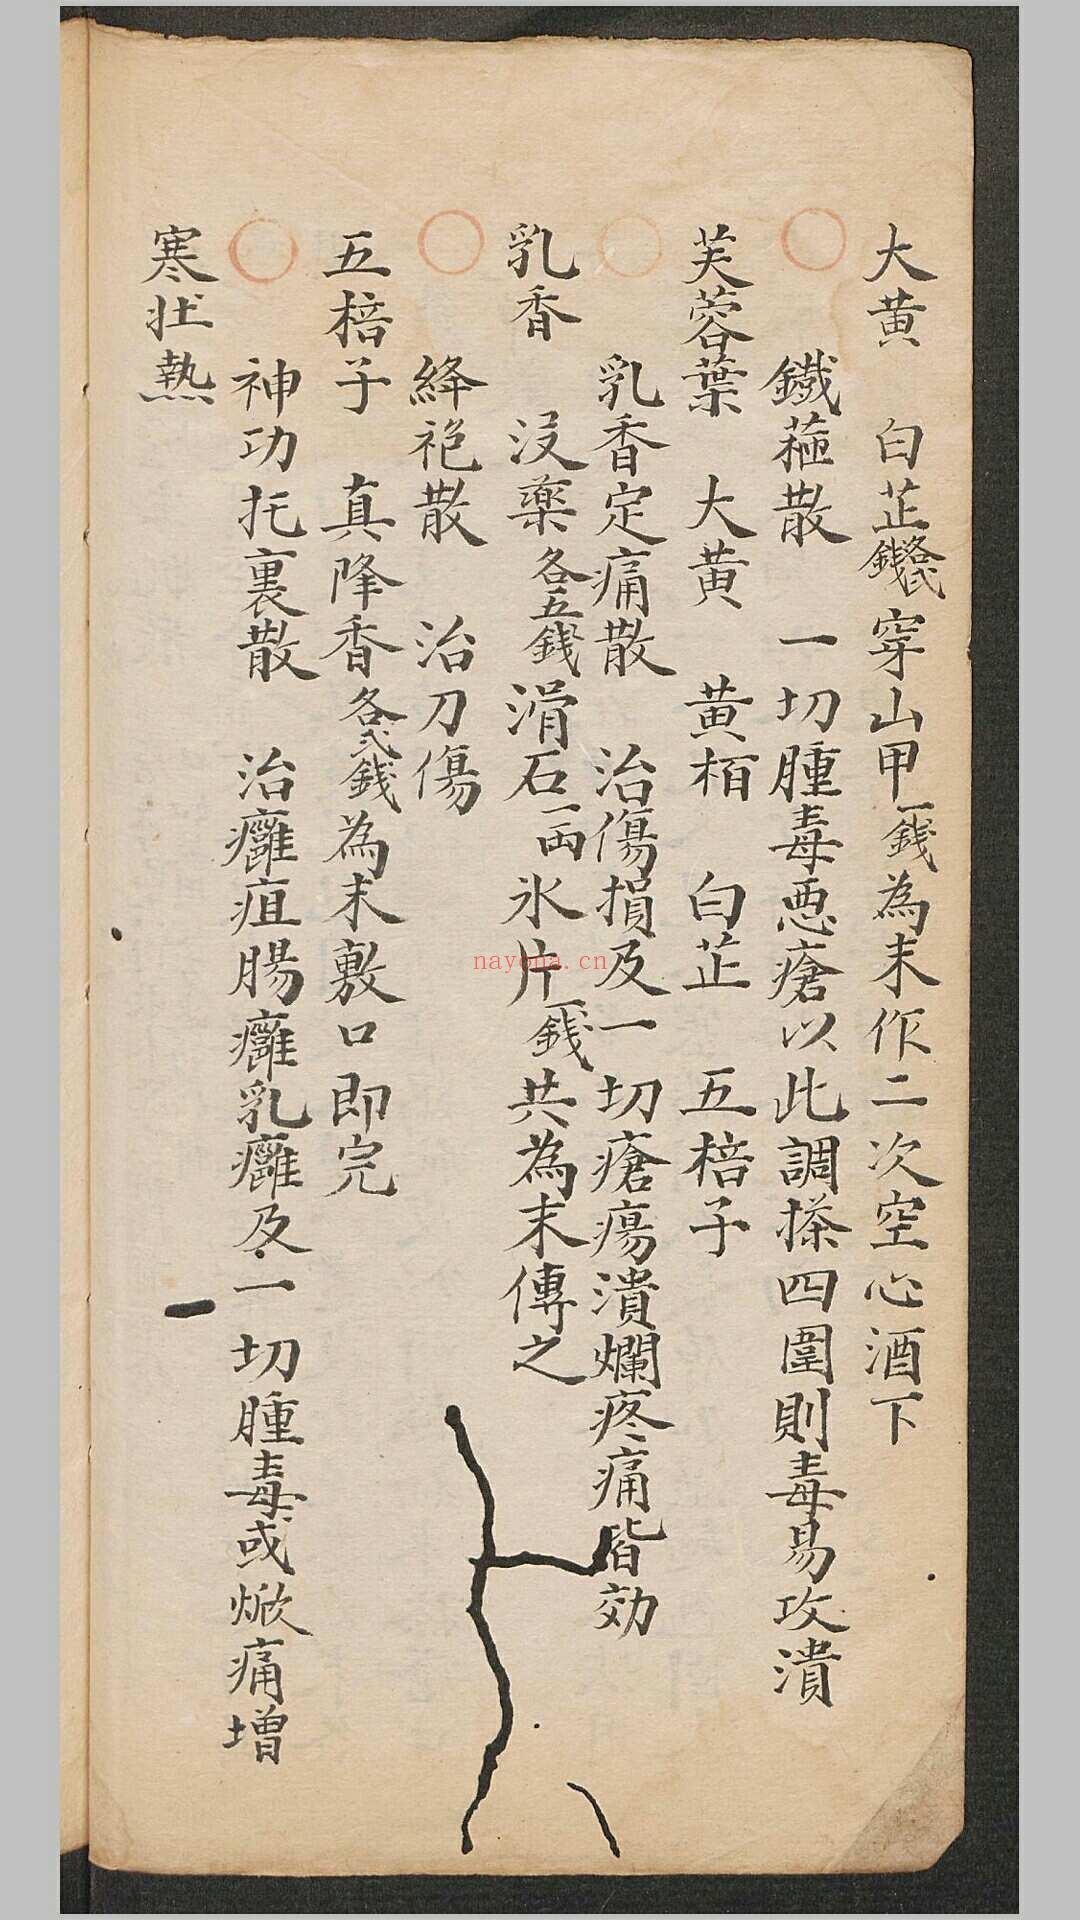 大黄　白芷各弍錢穿山甲一錢為末作二次空心酒下
鐵箍散　一切腫毒悪瘡以此調搽四圍則毒易攻潰
芙蓉葉　大黄　黄栢　白芷　五棓子
乳香定痛散　治傷損及一切瘡瘍潰爛疼痛皆効
乳香　没藥各五錢滑石一両氷片一錢共為末傅之
絳袍散　治刀傷
五棓子　真降香各弍錢為末敷口即完
神功托裏散　治癰疽腸癰乳癰及一切腫毒或焮痛増
寒壯熱
nayona.cn